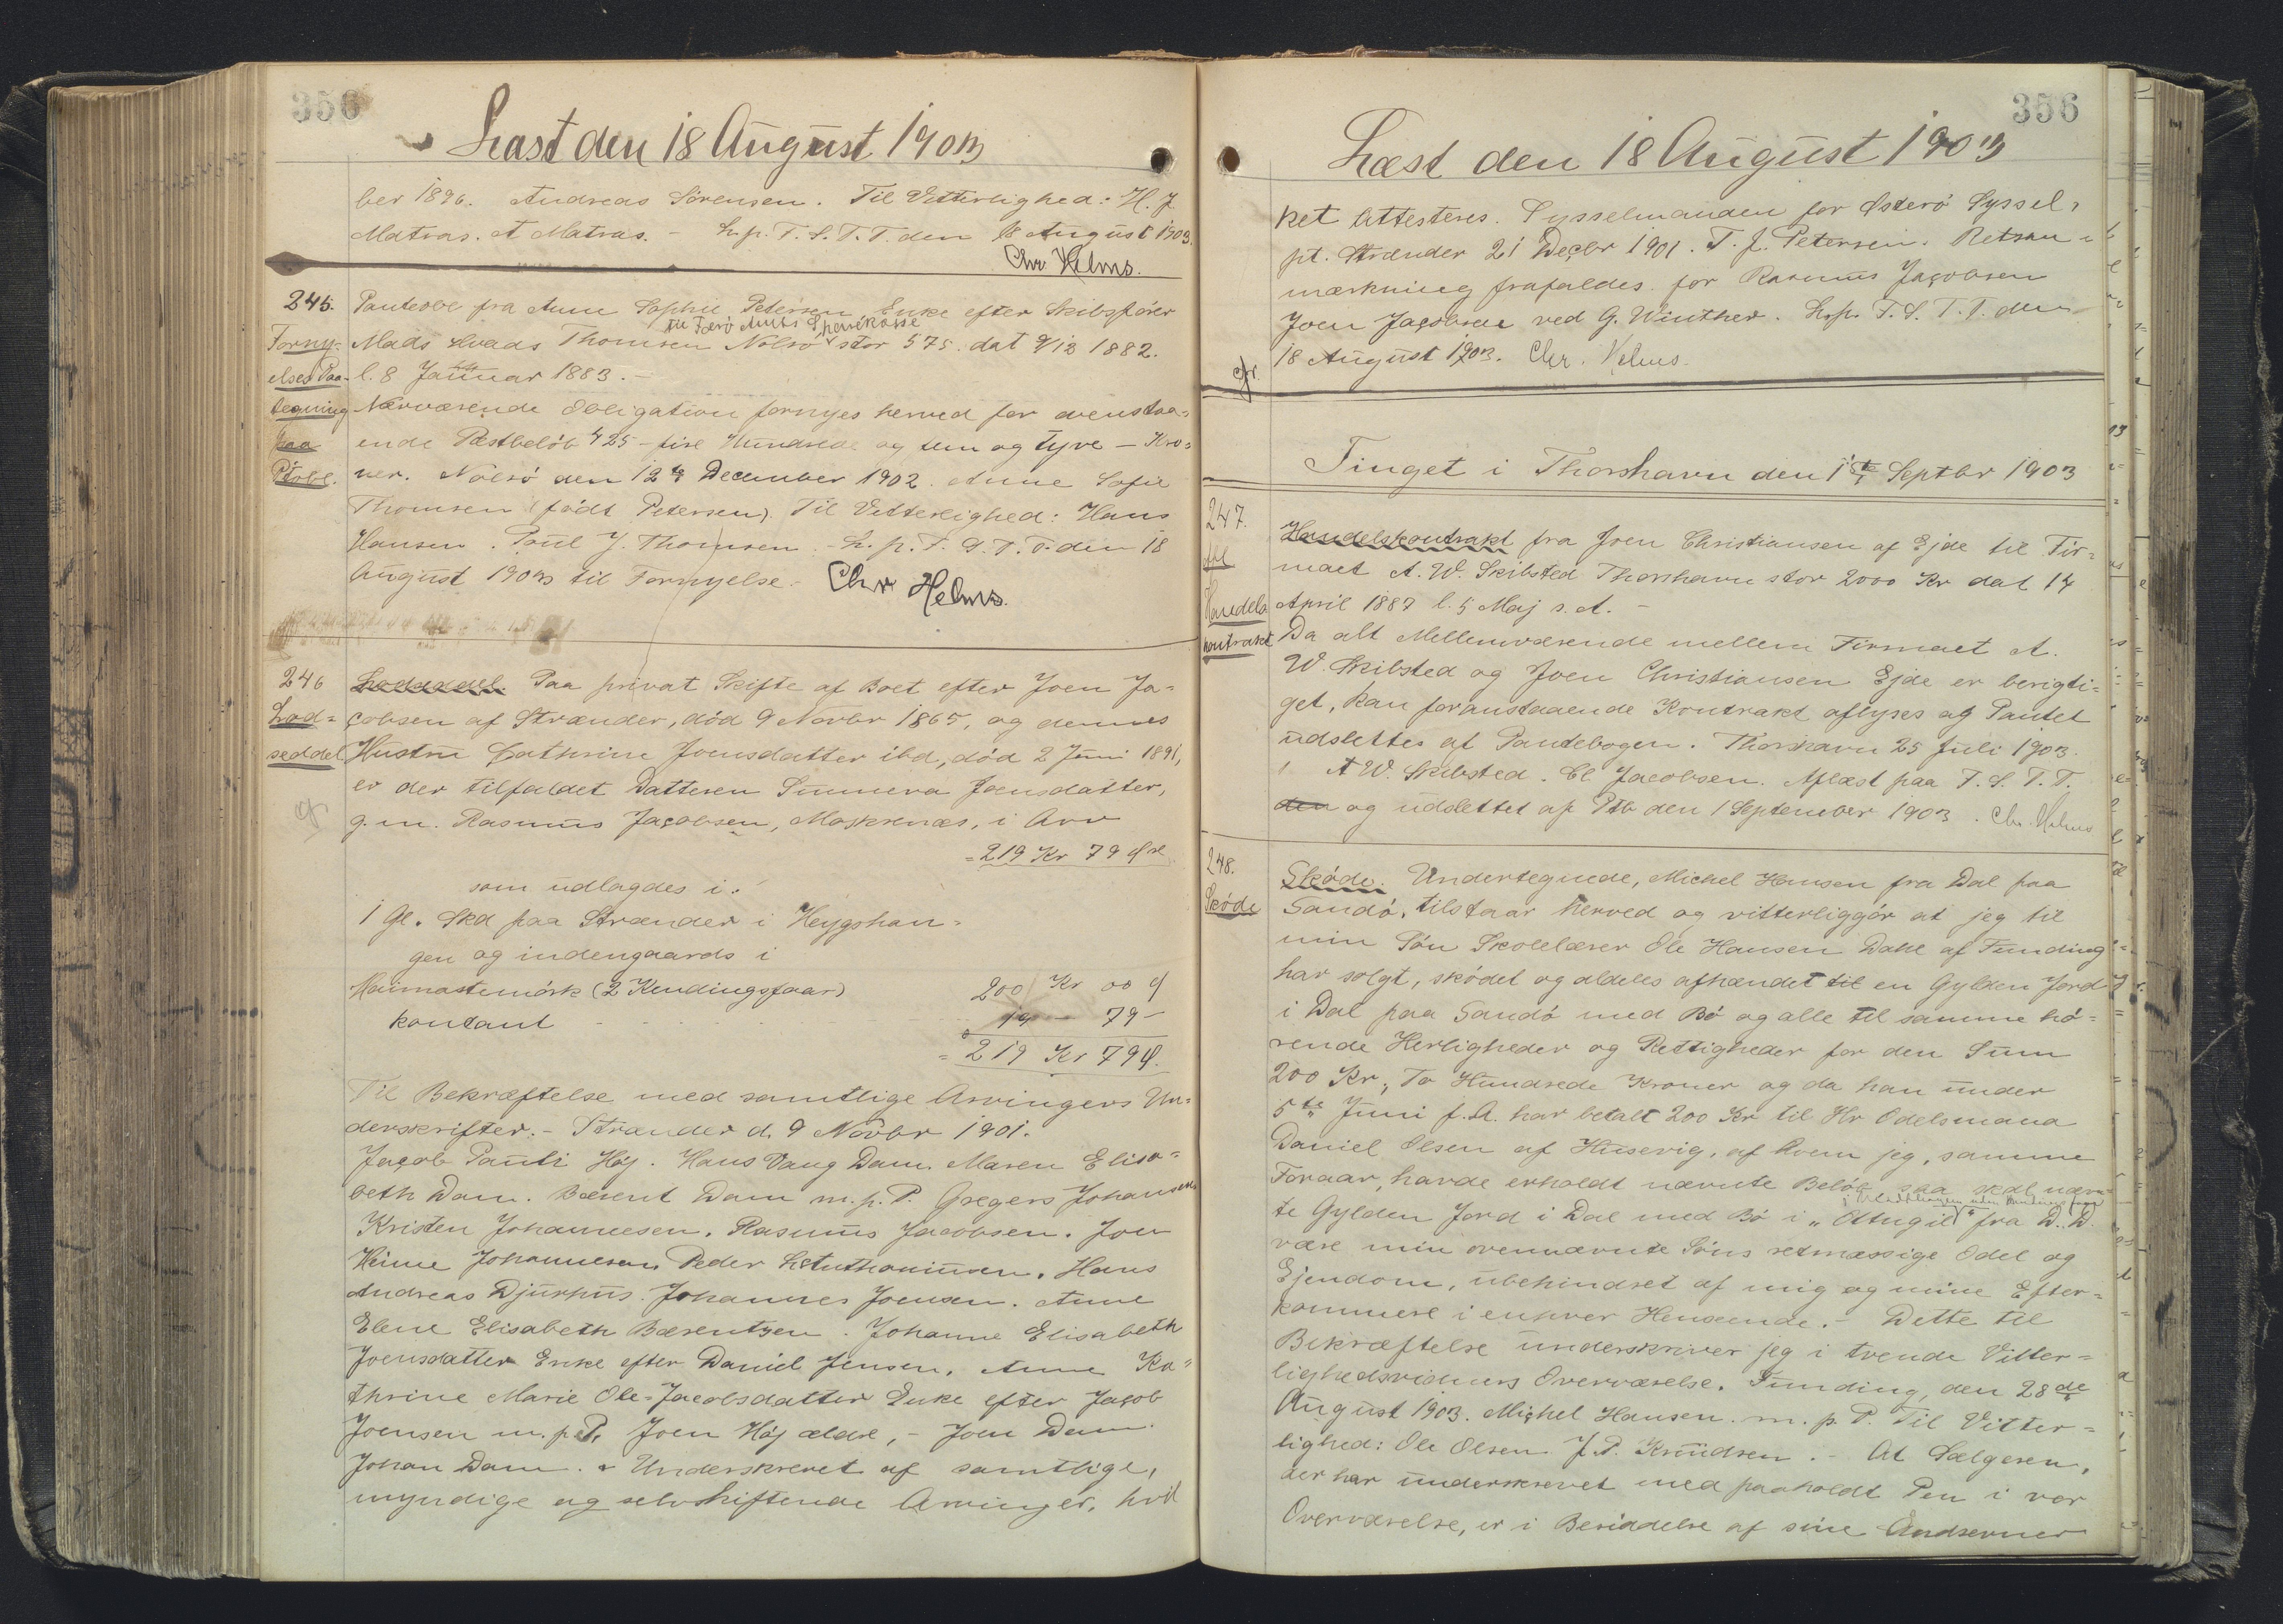 356
Læst den 18 August 1903
ber 1896. Andreas Sörensen. Til Vitterlighed: H. J.
Matras. A Matras. - L. p. F. S. T. T. den 18 August 1903.
Chr. Helms.
245. Panteobl fra Anne Sophie Petersen Enke efter Skibsfører
til Færö Amts Sparekasse
Forny- Mads Thomsen Nolsö stor 575. dat 9/12 1882.
elses Paa- l. 8 Januar 1883. -
tegning Nærværende Obligation fornyes herved for ovenstaa=
paa ende Restbelöb 425 - fire Hundrede og fem og tyve - Kro=
Ptobl. ner. Nolsö den 12te December 1902. Anne Sofie
Thomsen (födt Petersen). Til Vitterlighed: Hans
Hansen. Poul J. Thomsen. - L. p. F. S. T. T. den 18
August 1903 til Fornyelse. Chr Helms.
246 Lodseddel. Paa privat Skifte af Boet efter Joen Ja-
Lod= cobsen af Strænder, död 9 Novbr 1865, og dennes
seddel Hustru Cathrine Joensdatter ibd, död 2 Juni 1891,
er der tilfaldet Datteren Sunneva Joensdatter,
g. m. Rasmus Jacobsen, Morskrnæs, i Arv
= 219 Kr 79 Øre
som udlagdes i:
1 Gl. Skd paa Strænder i Heygshan=
gen og indengaards i
Heimastemörk (2 Kendingsfaar) 200 Kr 00 Ø
kontant 19 - 79 -
= 219 Kr 79 Ø.
Til Bekræftelse med samtlige Arvingers Un=
derskrifter. - Strænder d. 9 Novbr 1901.
Jacob Pauli Höj. Hans Vang Dam. Maren Elisa=
beth Dam. Bærent Dam m. p. P. Gregers Johansen
Kristen Johannesen. Rasmus Jacobsen. Joen
Heine Johannesen. Peder. Hans
Andreas Djurhus. Johannes Joensen. Anne
Elene Elisabeth Bærentzen. Johanne Elisabeth
Joensdatter Enke efter Daniel Jensen. Anne Ka=
thrine Marie Ole=Jacobsdatter Enke efter Jacob
Joensen m. p. P. Joen Höj ældre, - Joen Dam.
Johan Dam. - Underskrevet af samtlige,
myndige og selvskiftende Arvinger, hvil
356
Læst den 18 August 1903
ket attesteres. Sysselmanden for Österö Syssel,
pt. Strænder 21 Decbr 1901. T. J. Petersen. Retsan=
mærkning frafaldes. for Rasmus Jacobsen
Joen Jacobsen ved G. Winther. L. p. F. S. T. T. den
18 August 1903. Chr. Helms.
Tinget i Thorshavn den 1te Septbr 1903
247. Handelskontrakt fra Joen Christiansen af Ejde til Fir=
maet A. W. Skibsted Thorshavn stor 2000 Kr dat 14
Handels April 1887 l. 5 Maj s. A. -
kontrakt Da alt Mellemværende mellem Firmaet A.
W. Skibsted og Joen Christiansen Ejde er berigti=
get, kan foranstaaende Kontrakt aflyses og Pantet
udslettes af Pantebogen. Thorshavn 25 Juli 1903.
A W. Skibsted. Cl. Jacobsen. Aflæst paa F. S. T. T.
den og udslettet af Ptb den 1 September 1903. Chr. Helms
248. Sköde. Undertegnede, Michel Hansen fra Dal paa
Sköde Sandö, tilstaar herved og vitterliggör at jeg til
min Sön Skolelærer Ole Hansen Dahl af Funding
har solgt, sködet og aldeles afhændet til en Gylden Jord
i Dal paa Sandö med Bö og alle til samme hö=
rende Herligheder og Rettigheder for den Sum
200 Kr., To Hundrede Kroner og da han under
5te Juni f. A. har betalt 200 Kr til Hr Odelsmand
Daniel Olsen af Husevig, af hvem jeg, samme
Foraar, havde erholdt nævnte Belöb saa skal nævn=
te Gylden Jord i Dal med Bö i "Oltugil" fra D. D.
være min ovennævnte Söns retmæssige Odel og
Ejendom, ubehindret af mig og mine Efter=
kommere i enhver Henseende. - Dette til
Bekræftelse underskriver jeg i tvende Vitter=
lighedsvidners Overværelse. Funding, den 28de
August 1903. Michel Hansen. m. p. P. Til Vitter=
lighed: Ole Olsen J. P. Knudsen. - At Sælgeren,
der har underskrevet med paaholdt Pen i vor
Overværelse, er i Besiddelse af sine Aandsevner